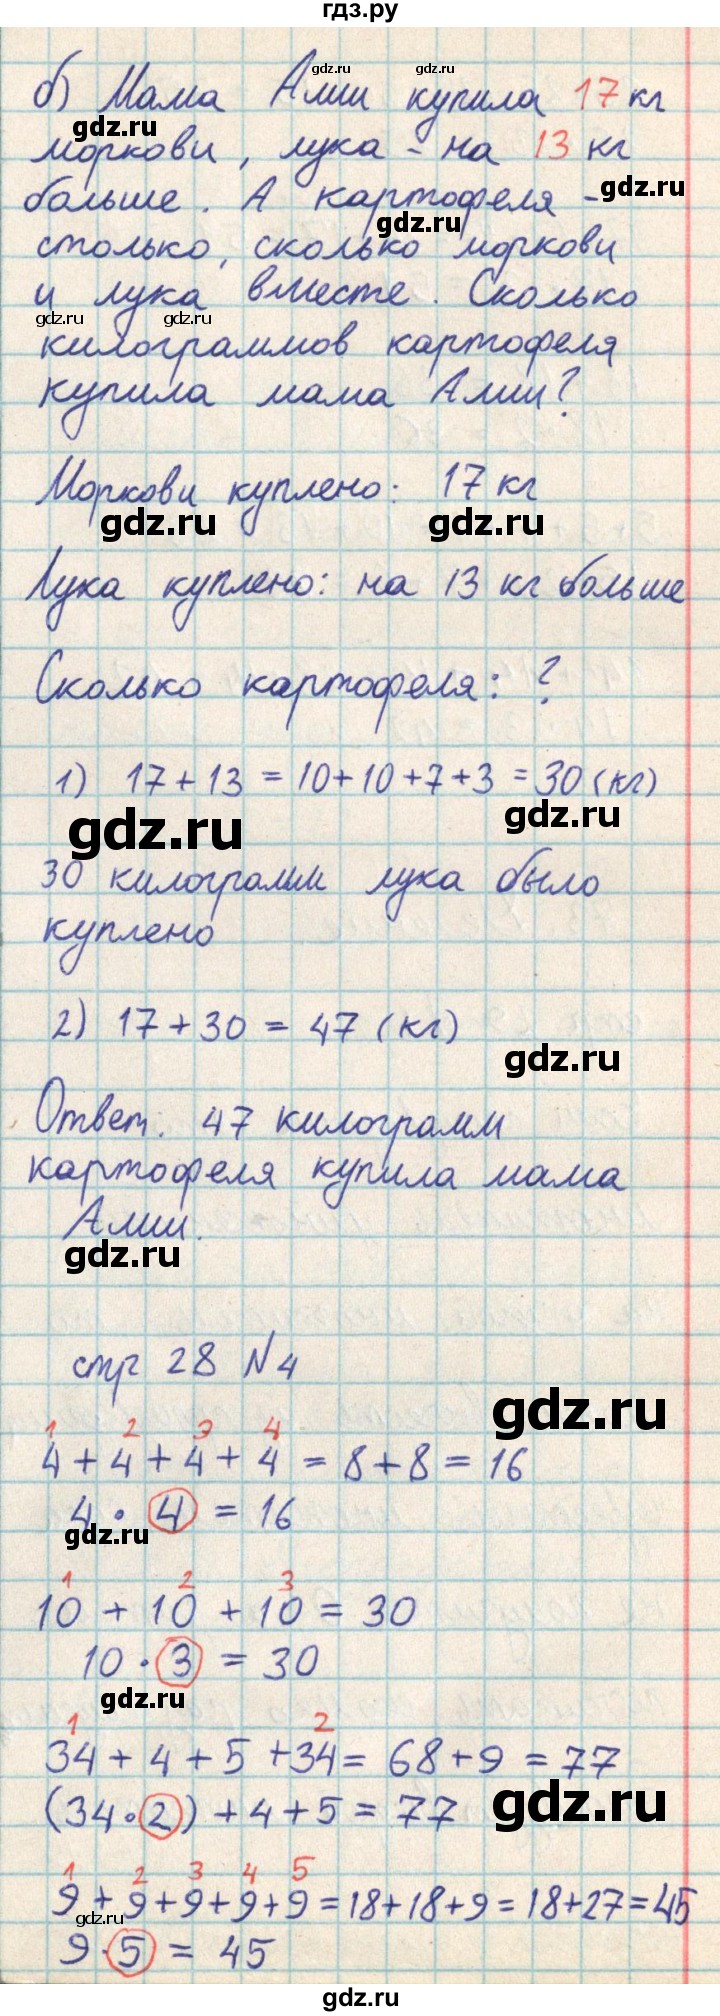 гдз.ру
б) Мама Алии купила 17 кг
моркови, лука - на 13 кг
больше. А картофеля -
столько, сколько моркови
и лука вместе. Сколько
килограммов картофеля
купила мама Алии?
Моркови куплено: 17 кг
Лука куплено: на 13 кг больше
Сколько картофеля: ?
1) 17 + 13 = 10+10+7+3 = 30 (кг)
30 килограмм лука было
куплено
2) 17 + 30 = 47 (кг)
Ответ. 47 килограмм
картофеля купила мама
Алии.
стр 28 N 4
1 2 3 4
4 + 4 + 4 + 4 = 8 + 8 = 16
4 · 4 = 16
1 2 3
10 + 10 + 10 = 30
10 · 3 = 30
1 2
34 + 4 + 5 + 34 = 68 + 9 = 77
(34 · 2) + 4 + 5 = 77
1 2 3 4 5
9 + 9 + 9 + 9 + 9 = 18 + 18 + 9 = 18 + 27 = 45
9 · 5 = 45
gdz.ru